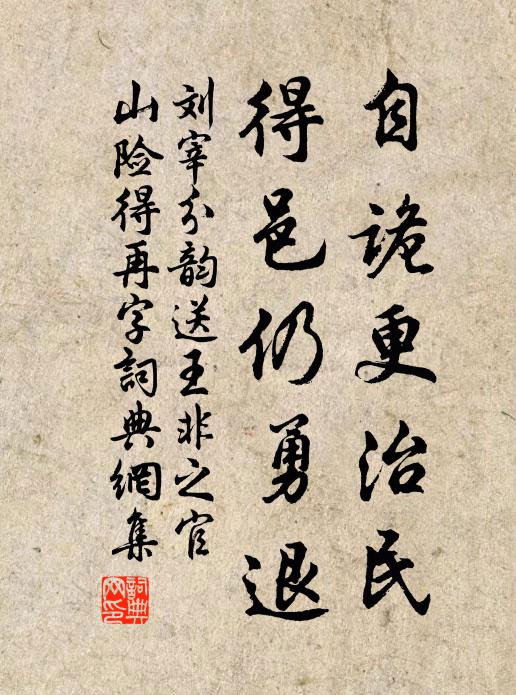 自詭更治民
得邑仍勇退
刘宰分韵送王非之官
山险得再字詞典網集
詞典